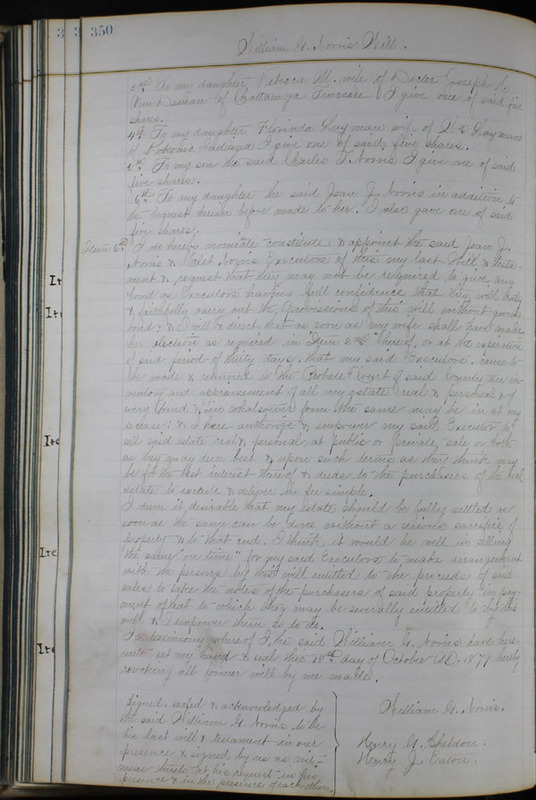 350
William G. Norris' Will.
3rd To my daughter Rebecca M. wife of Doctor Joseph
of Chattanooga Tennessee I give one of said five
shares.
4th To my daughter Florinda Layman wife of Layman
of I give one of said five shares.
5th To my son the said Charles T. Norris I give one of said
five shares.
6th To my daughter the said Joan J. Norris in addition to
the bequest before made to her. I also gave one of said
five shares.
Item 6th I do hereby nominate constitute & appoint the said Joan J.
Norris & Norris Executors of this my last Will & testa-
ment & request that they may not be required to give any
bond as Executors having full confidence that they will
& faithfully carry out the provisions of this will without
bond; & I will & direct that as soon as my wife shall have made
her election as required in "Item 2nd" hereof, or at the expiration
of said period of thirty days, that my said Executors cause to
be made & returned to the Probate Court of said County an in-
ventory and appraisement of all my estate real & personal & of
every kind & in whatsoever form the same may be in at my
decease; & I here authorize & empower my said Executors to
sell said estate real & personal at public or private sale or both
as they may deem best & upon such terms as they think may
be for the best interest thereof & deeds to the purchasers of the real
estate to execute & deliver in fee simple.
I deem it desirable that my estate should be fully settled as
soon as the same can be done without a serious sacrifice of
property & to that end, I think, it would be well in selling
the same "on time" for my said Executors to make arrangement
with the persons by this will entitled to the proceeds of said
sales to take the notes of the purchasers of said property in pay-
ment of that to which they may be severally entitled to by this
will & I empower them so to do.
In testimony whereof I, the said William G. Norris have here-
unto set my hand & seal this 18th day of October A.D. 1877 hereby
revoking all former will by me made.
William G. Norris.
Signed, sealed & acknowledged by
the said William G. Norris to be
his last will & testament in our
presence & signed by us as wit-
nesses thereto at his request in his
presence & in the presence of each other.
Henry G. Sheldon.
Henry J. Eaton.
It
It
Ite
Ite
Ite